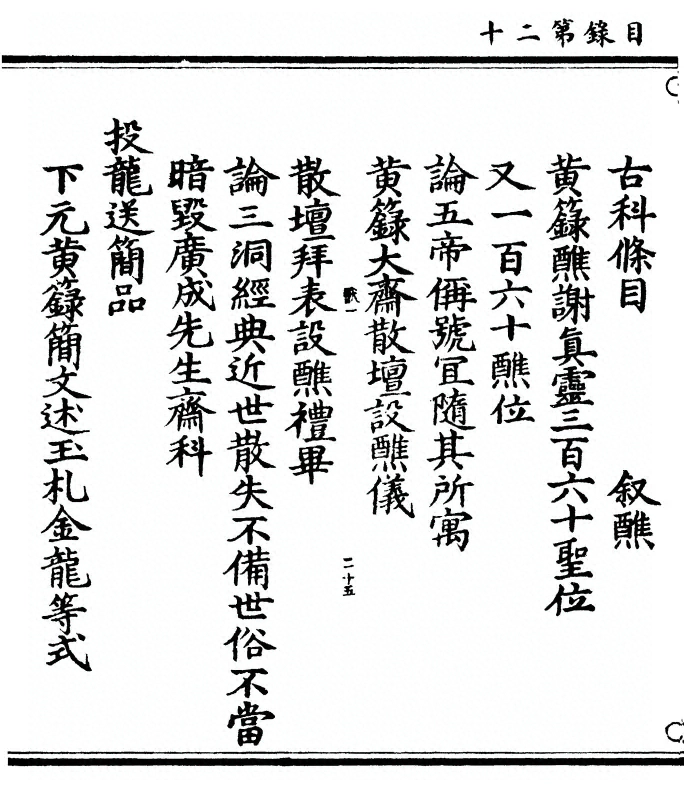 目錄第二十
古科條目 叙醮
黄籙醮謝眞靈三百六十聖位
又一百六十醮位
論五帝偁號冝隨其所寓
黄籙大齋散壇設醮儀
二十五
散壇拜表設醮禮畢
論三洞經典近世散失不備世俗不當
暗毀廣成先生齋科
投龍送簡品
下元黄籙簡文述玉札金龍等式